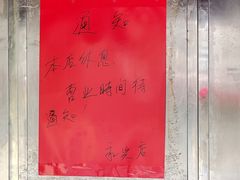 通知
本店休息
营业时间待
通知
店